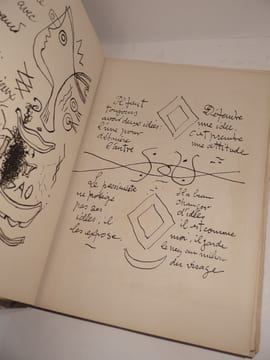 avec
XXX
AO
Il faut
toujours
avoir deux idées:
l'une pour
détruire
l'autre
Défendre
une idée,
c'est prendre
une attitude
Le pessimiste
ne protège
pas ses
idées, il
les expose.
Il a beau
changer
d'idées
il est comme
moi, il garde
le nez au milieu
du visage